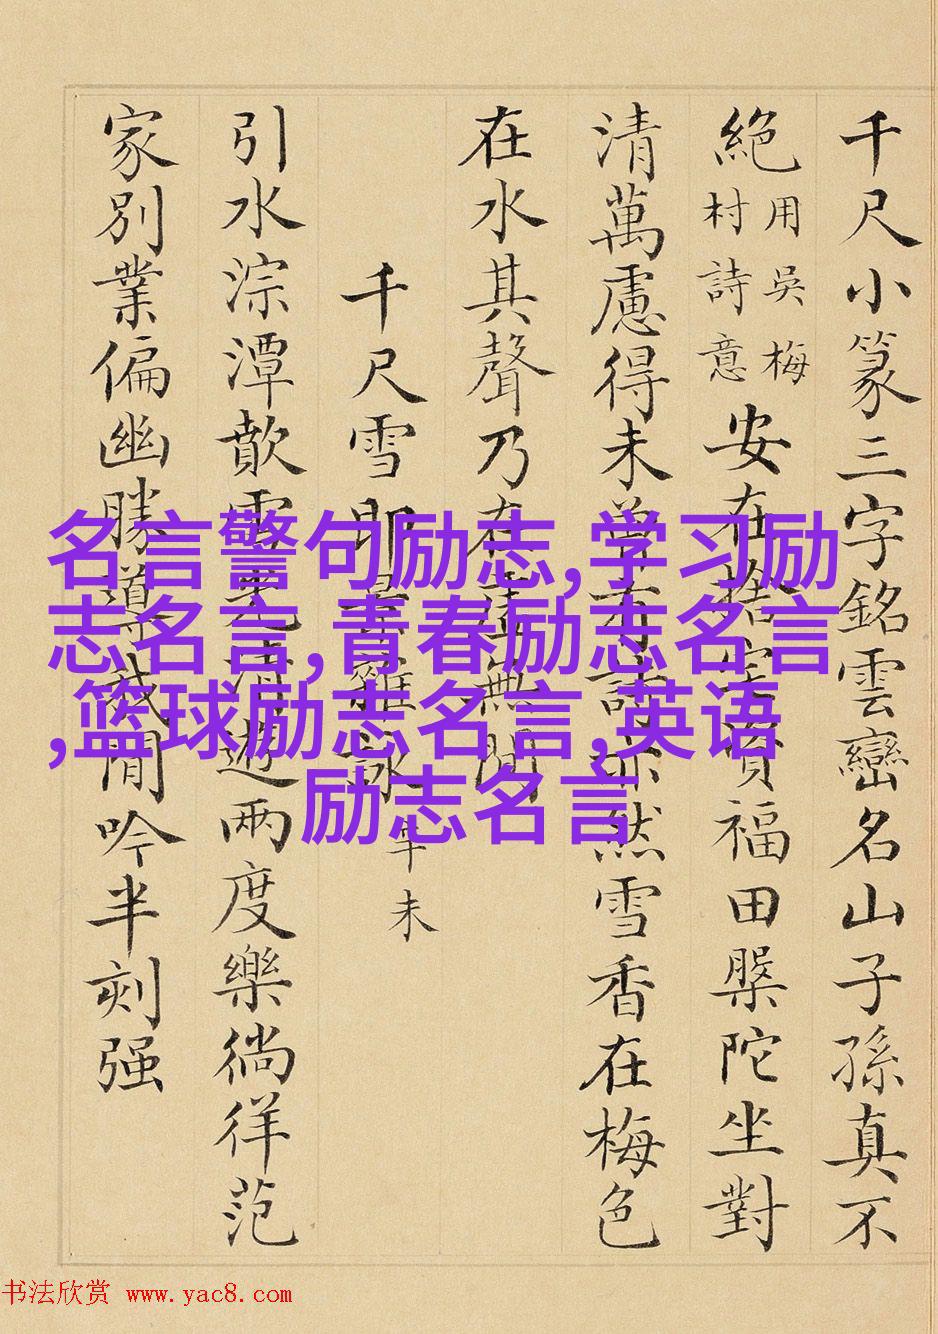 千尺小篆三字銘雲巒名山子孫真不
絕
用吳梅
村詩意
安在捨資福田槃陀坐對
清萬慮得未曾有詎然雪香在梅色
在水其聲乃在虛無間
千尺雪即景雜詠
辛未
引水淙潭歕雪光清遊兩度樂徜徉范
家別業偏幽勝導我閒吟半刻强
名言警句励志,学习励
志名言,青春励志名言
,篮球励志名言,英语
励志名言
书法欣赏 www.yac8.com